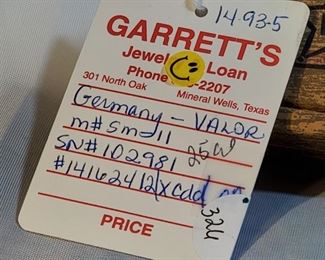 14-93-5
GARRETT'S
Jewel Loan
Phone -2207
301 North Oak Mineral Wells, Texas
Germany - VALOR
m# sm 11
25cal
SN# 102981
#14162412/xcdd
326
PRICE